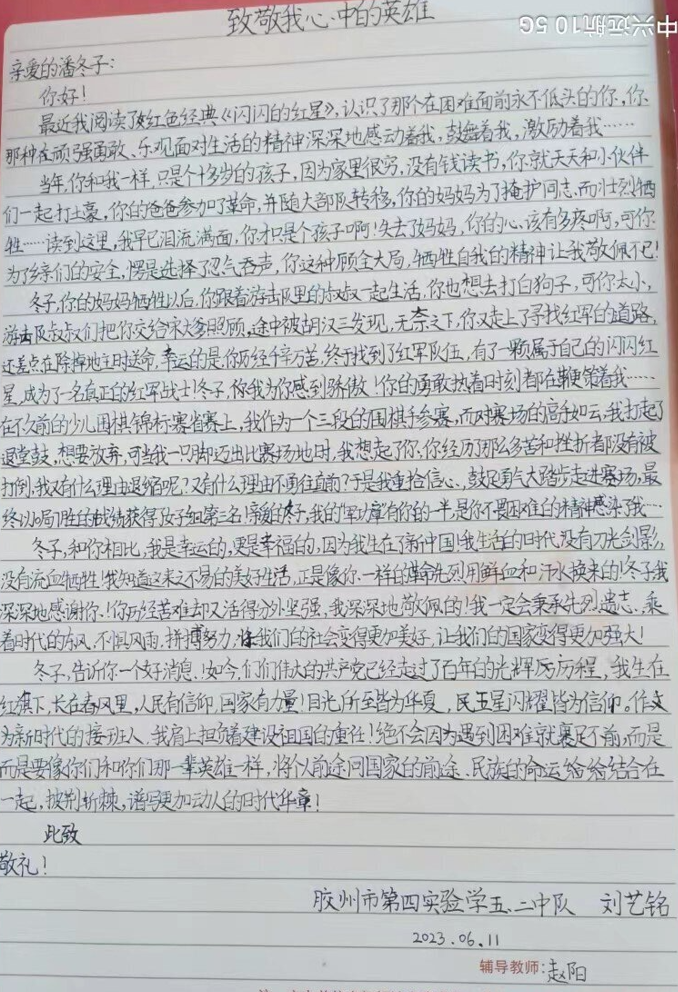 中兴远航10 5G
致敬我心中的英雄
亲爱的潘冬子:
你好!
最近我阅读了红色经典《闪闪的红星》,认识了那个在困难面前永不低头的你,你
那种在顽强勇敢、乐观面对生活的精神深深地感动着我,鼓舞着我,激励着我……
当年,你和我一样,只是个十多岁的孩子,因为家里很穷,没有钱读书,你就天天和小伙伴
们一起打土豪,你的爸爸参加了革命,并随大部队转移,你的妈妈为了掩护同志,而壮烈牺
牲……读到这里,我早已泪流满面,你才只是个孩子啊!失去了妈妈,你的心,该有多疼啊,可你
为了乡亲们的安全,愣是选择了忍气吞声,你这种顾全大局,牺牲自我的精神让我敬佩不已!
冬子,你的妈妈牺牲以后,你跟着游击队里的叔叔一起生活,你也想去打白狗子,可你太小,
游击队叔叔们把你交给宋大爹照顾,途中被胡汉三发现,无奈之下,你又走上了寻找红军的道路,
还差点在除掉地主时送命,幸运的是你历经千辛万苦,终于找到了红军队伍,有了一颗属于自己的闪闪红
星,成为了一名真正的红军战士!冬子,你我为你感到骄傲!你的勇敢执着时刻都在鞭策着我……
在不久前的少儿围棋锦标赛省赛上,我作为一个三段的围棋手参赛,而对赛场的高手如云,我打起了
退堂鼓,想要放弃,可当我一只脚迈出比赛场地时,我想起了你,你经历了那么多苦和挫折都没有被
打倒,我又有什么理由退缩呢?又有什么理由不勇往直前?于是我重拾信心、鼓足勇气大踏步走进赛场,最
终以局胜的战绩获得女子组第三名!亲爱的冬子,我的军功章有你的一半,是你不畏困难的精神感染了我…
冬子,和你相比,我是幸运的,更是幸福的,因为我生在了新中国!我生活的时代,没有刀光剑影,
没有流血牺牲!我知道这来之不易的美好生活,正是像你一样的革命先烈用鲜血和汗水换来的!冬子我
深深地感谢你!你历经苦难却又活得分外坚强,我深深地敬佩的!我一定会秉承先烈遗志,乘
着时代的东风,不惧风雨,拼搏努力,让我们的社会变得更加美好,让我们的国家变得更加强大!
冬子,告诉你一个好消息!如今,们们伟大的共产党已经走过了百年的光辉历程,我生在
红旗下,长在春风里,人民有信仰,国家有力量!目光所至皆为华夏,五星闪耀皆为信仰。作
为新时代的接班人,我肩上担负着建设祖国的重任!绝不会因为遇到困难就裹足不前,而是
而是要像你们和你们那一辈英雄一样,将个人前途同国家的前途、民族的命运给给结合在
一起,披荆折棘,谱写更加动人的时代华章!
此致
敬礼!
胶州市第四实验学五.二中队 刘艺铭
2023.06.11
辅导教师:赵阳